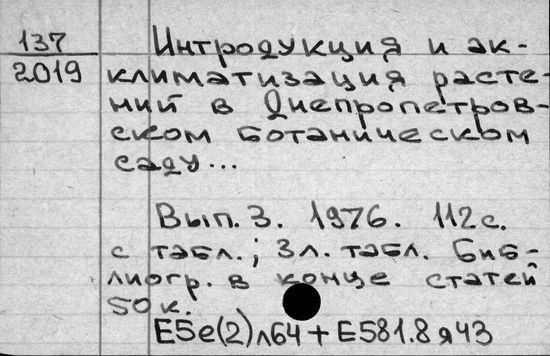 137
2019
Интродукция и ак-
климатизация расте-
ний в Днепропетров-
ском ботаническом
саду...
Вып. 3. 1976. 112 с.
с табл.; 3 л. табл. Биб-
лиогр. в конце статей
50 к.
Е5е(2)л64 + Е581.8я43